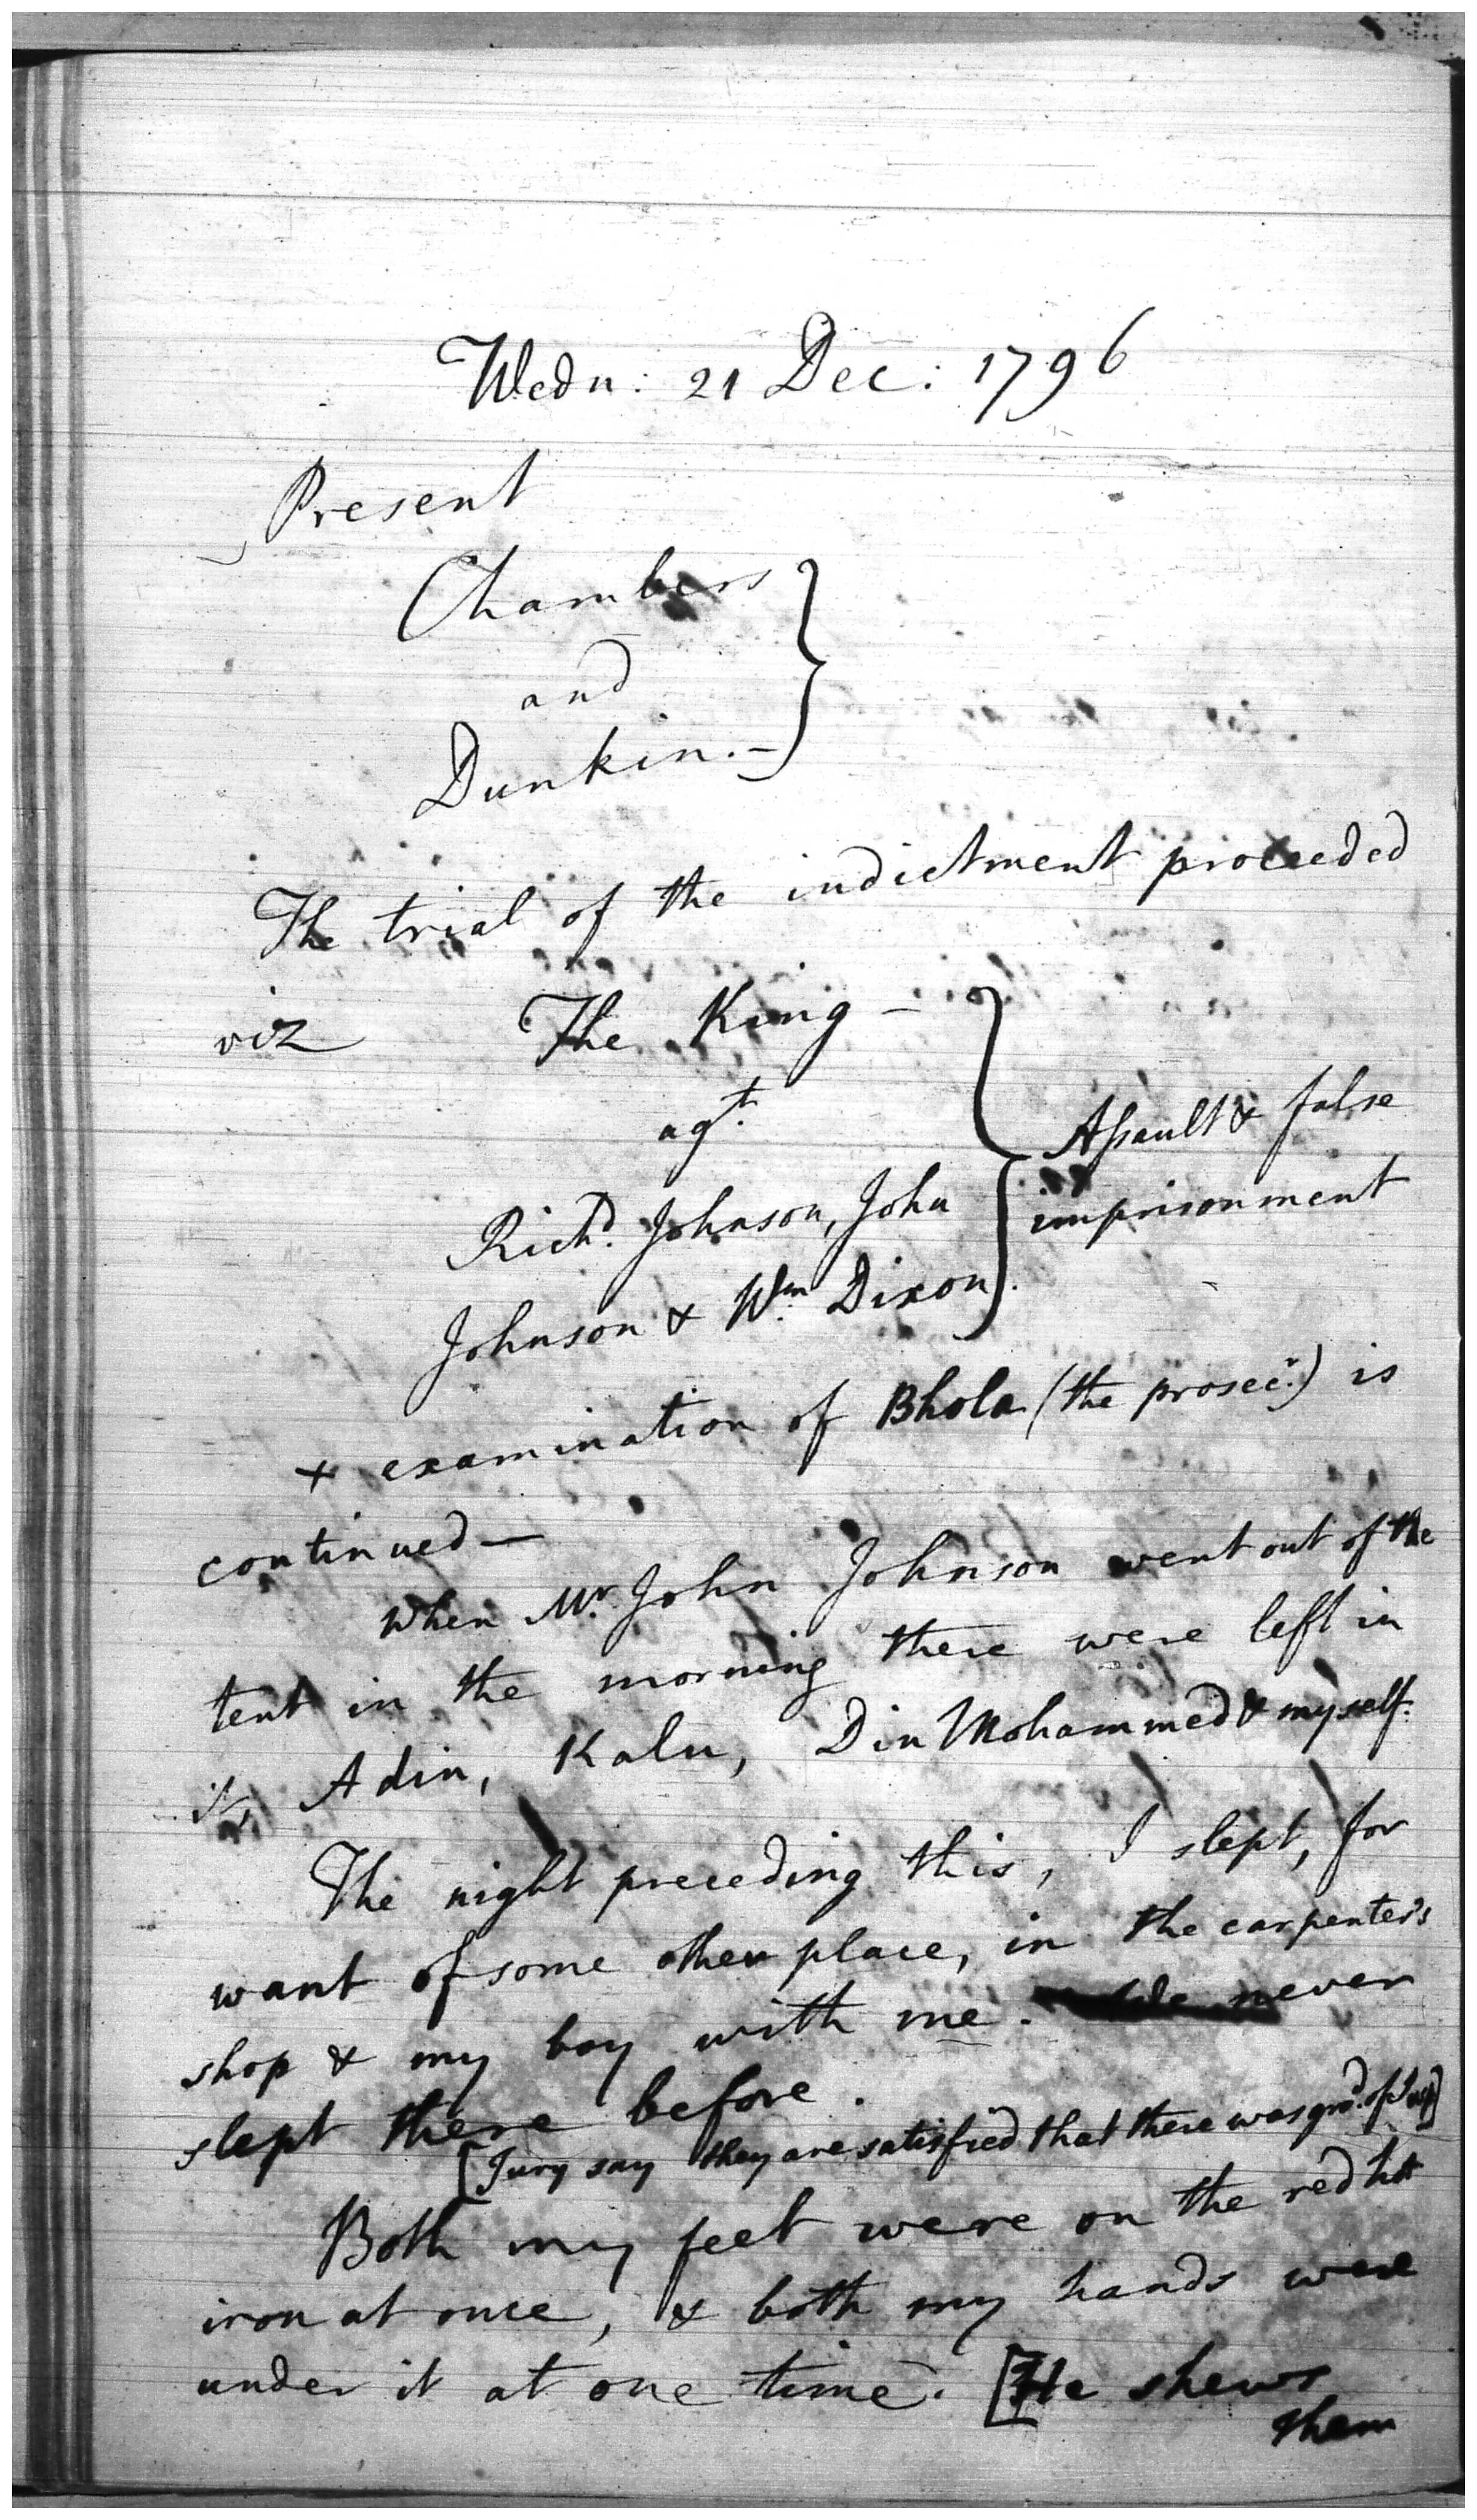 Wedn: 21 Dec: 1796
Present
Chambers
and
Dunkin. –
The trial of the indictment proceeded
viz The King –
agt.
Richd. Johnson, John
Johnson & Wm Dixon.
Assault & false
imprisonment
+ examination of Bhola (the prosecr.) is
continued —
When Mr. John Johnson went out of the
tent in the morning there were left in
it, Adin, Kalu, Din Mohammed & myself.
The night preceding this, I slept, for
want of some other place, in the carpenter's
shop & my boy with me. We never
slept there before.
[Jury say they are satisfied that there was grd. of
Both my feet were on the red hot
iron at once, & both my hands were
under it at one time. [He shews
them